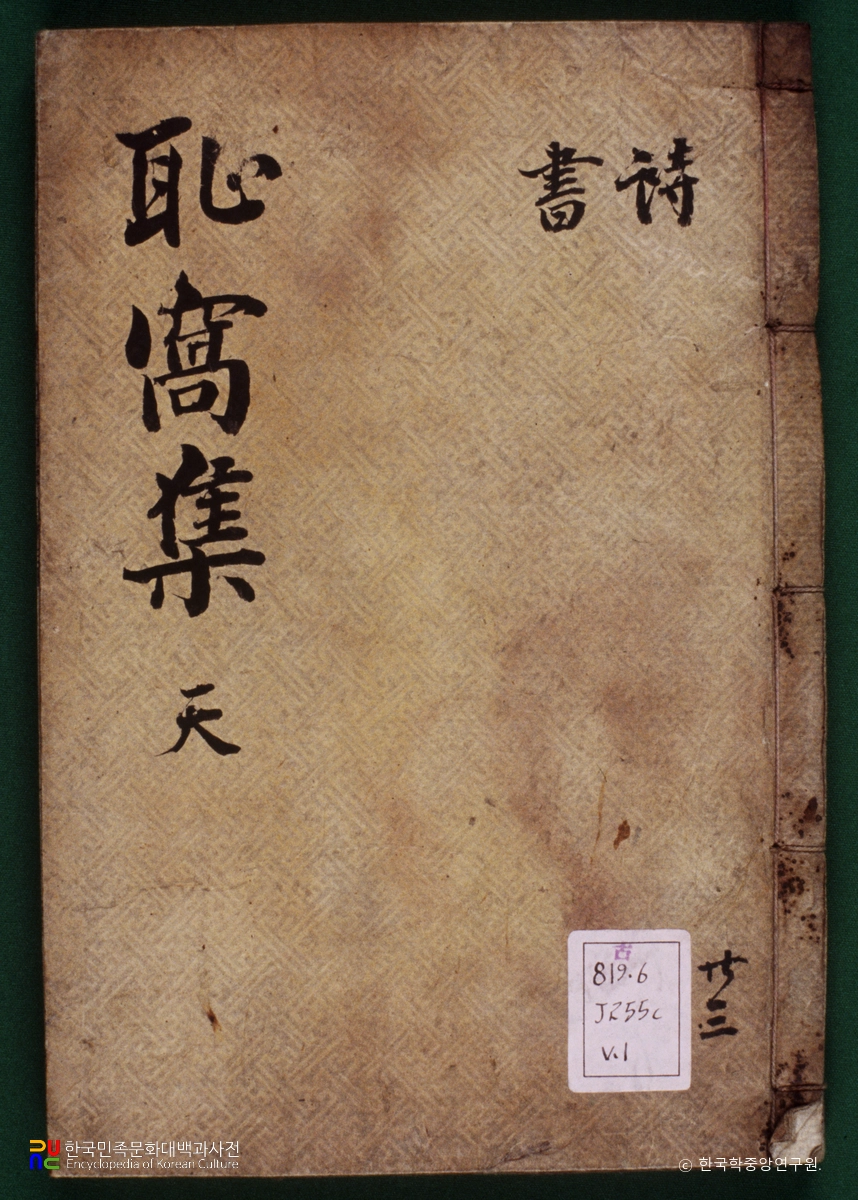 詩
書
恥窩集 天
古
819.6
J255c
V.1
共三
한국민족문화대백과사전
Encyclopedia of Korean Culture
© 한국학중앙연구원.